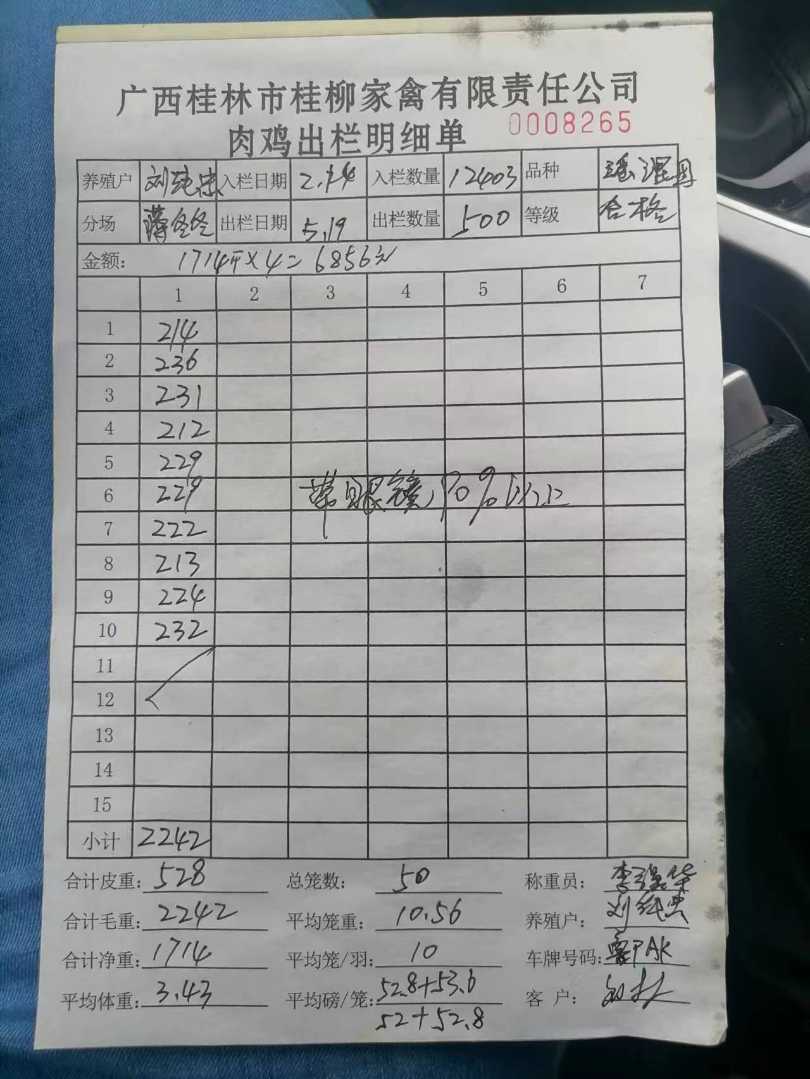 广西桂林市桂柳家禽有限责任公司
肉鸡出栏明细单 0008265
养殖户 刘纯忠 入栏日期 2.14 入栏数量 12403 品种
分场 蒋冬冬 出栏日期 5.19 出栏数量 500 等级 合格
金额: 1714斤×4=6856元
1 2 3 4 5 6 7
1 214
2 236
3 231
4 212
5 229
6 229 带眼镜,90%以上
7 222
8 213
9 224
10 232
11
12
13
14
15
小计 2242
合计皮重: 528 总笼数: 50 称重员:
合计毛重: 2242 平均笼重: 10.56 养殖户: 刘纯忠
合计净重: 1714 平均笼/羽: 10 车牌号码:
平均体重: 3.43 平均磅/笼: 52.8+53.6 客 户:
52+52.8